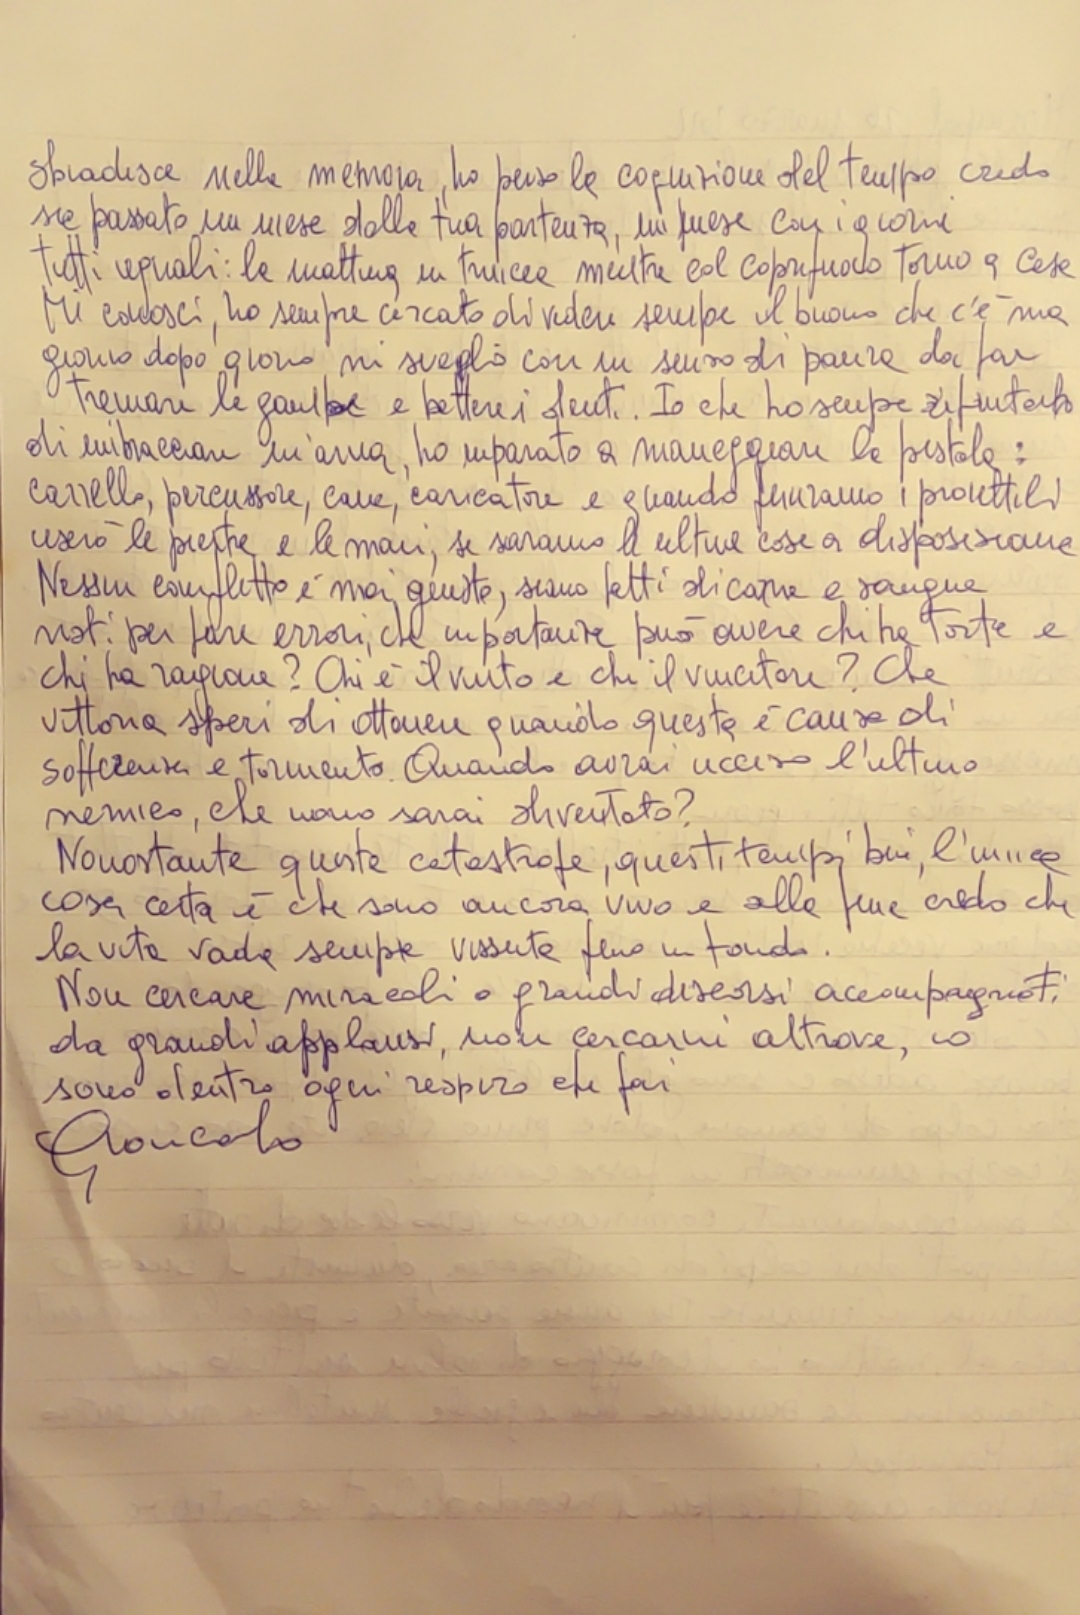 sbiadisce nella memoria, ho perso la cognizione del tempo credo
sia passato un mese dalla tua partenza, un mese con i giorni
tutti uguali: la mattina in trincea mentre col coprifuoco torno a casa
Mi conosci, ho sempre cercato di vedere sempre il buono che c'è ma
giorno dopo giorno mi sveglio con un senso di paura da far
tremare le gambe e battere i denti. Io che ho sempre rifiutato
di imbracciare un'arma, ho imparato a maneggiare la pistola:
carrello, percussore, cane, caricatore e quando finiranno i proiettili
userò le pietre e le mani, se saranno le ultime cose a disposizione
Nessun conflitto è mai giusto, siamo fatti di carne e sangue
nati per fare errori, che importanza può avere chi ha torto e
chi ha ragione? Chi è il vinto e chi il vincitore? Che
vittoria speri di ottenere quando questa è causa di
sofferenza e tormento. Quando avrai ucciso l'ultimo
nemico, che uomo sarai diventato?
Nonostante questa catastrofe, questi tempi bui, l'unica
cosa certa è che sono ancora vivo e alla fine credo che
la vita vada sempre vissuta fino in fondo.
Non cercare miracoli o grandi discorsi accompagnati
da grandi applausi, non cercarmi altrove, io
sono dentro ogni respiro che fai